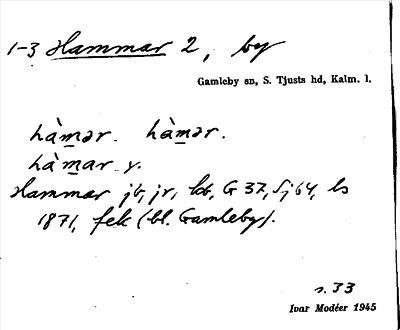 1-3 Hammar 2, by
Gamleby sn, S. Tjusts hd, Kalm. l.
hàmər. hàmər.
hàmar y.
Hammar jb, jr, kb, G 37, Sj 64, ls
1871, fek (bl. Gamleby).
s. 33
Ivar Modéer 1945